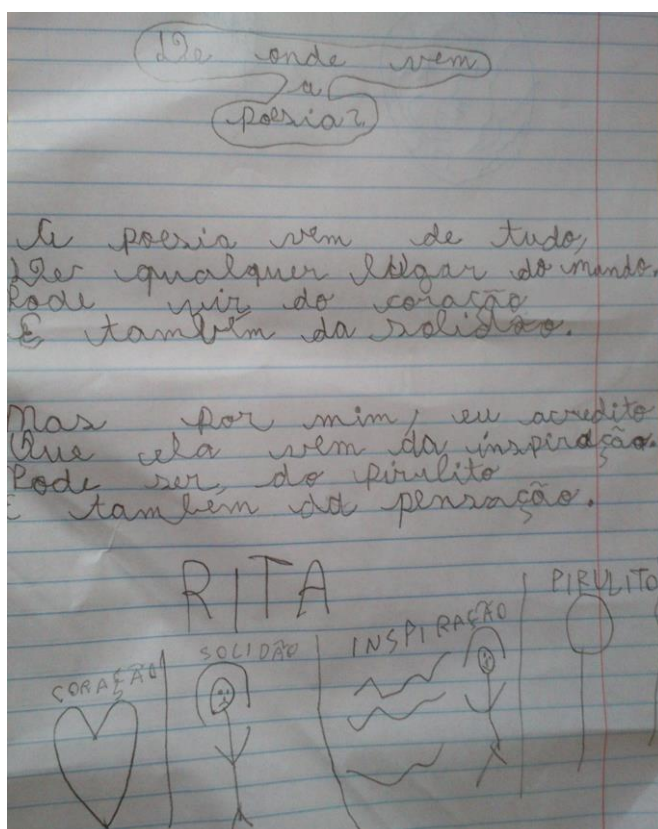 De onde vem
a
poesia?
A poesia vem de tudo,
De qualquer lugar do mundo.
Pode vir do coração
E também da solidão.
Mas por mim, eu acredito
Que ela vem da inspiração.
Pode ser, do pirulito
E também da pensação.
RITA
CORAÇÃO
SOLIDÃO
INSPIRAÇÃO
PIRULITO